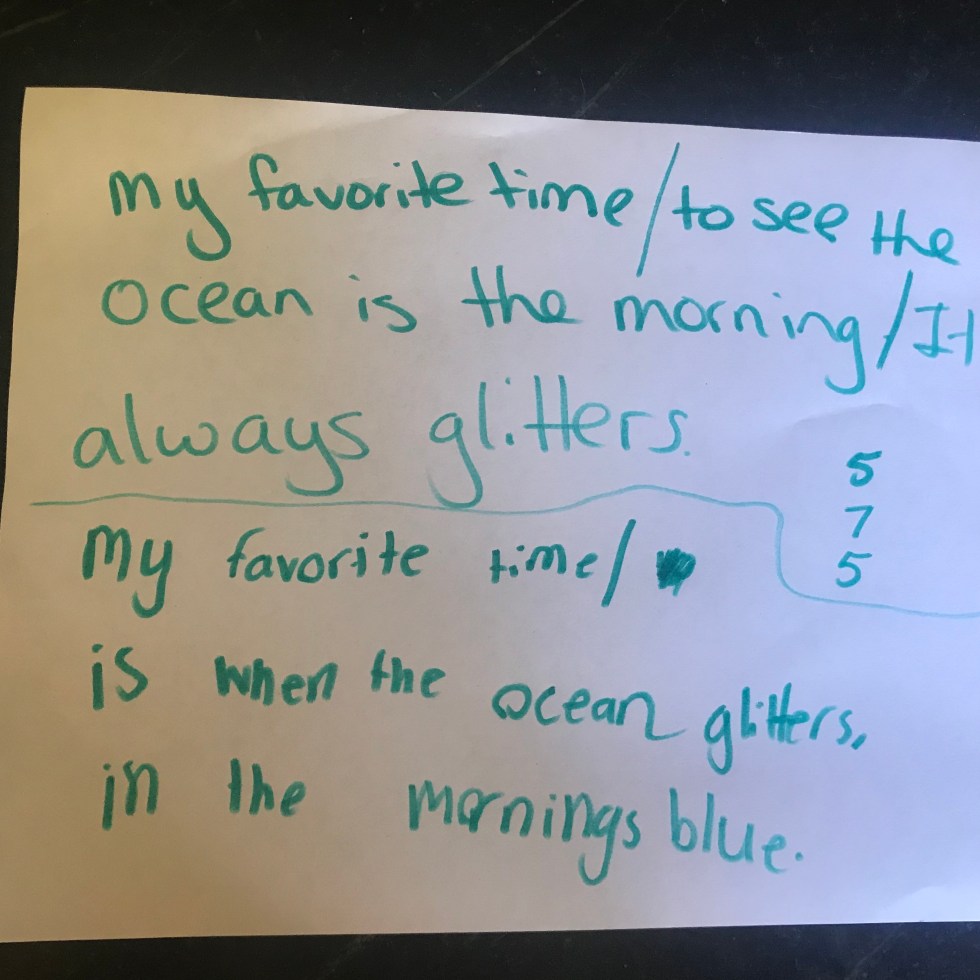 my favorite time/to see the
ocean is the morning/It
always glitters.
5
7
5
My favorite time/
is when the ocean glitters,
in the mornings blue.